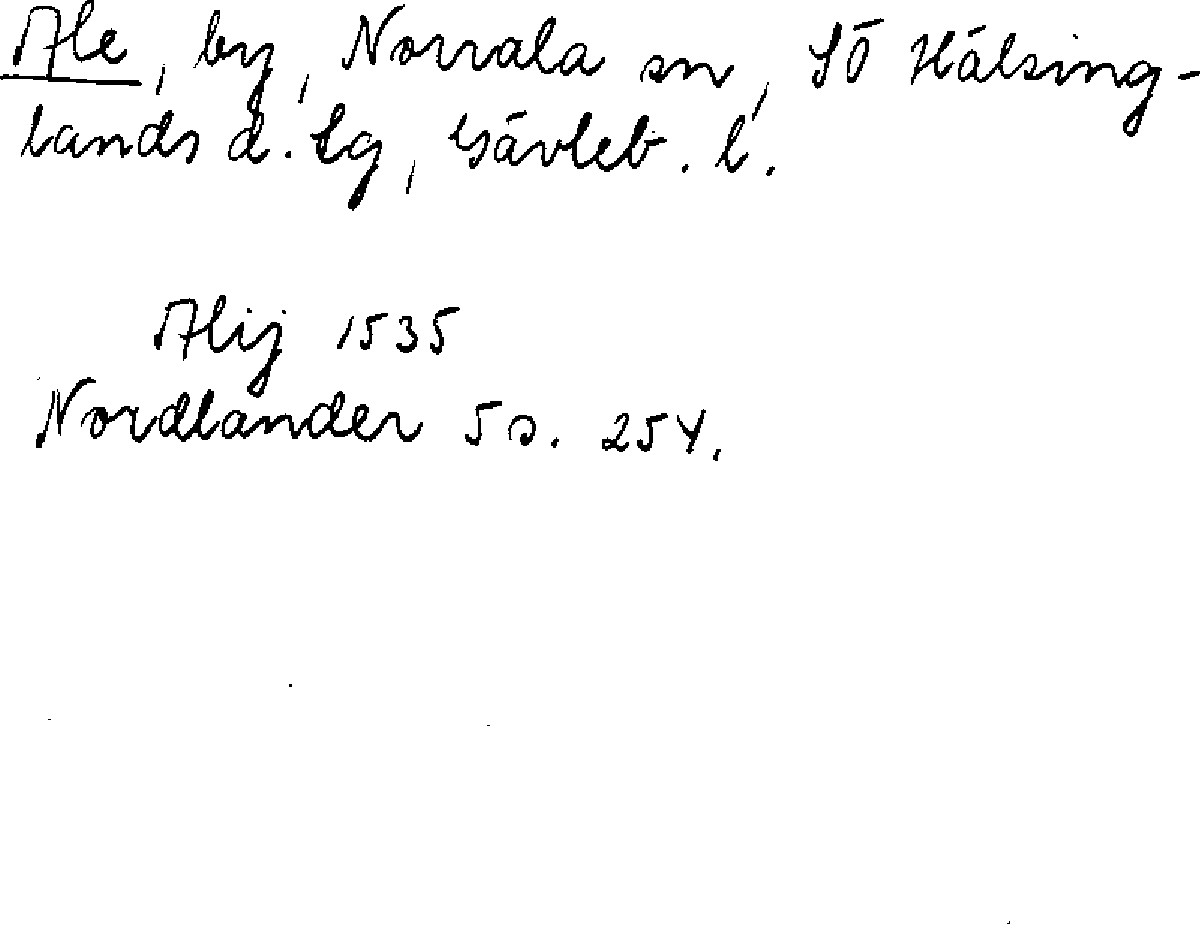 Ale, by, Norrala sn, SÖ Hälsing-
lands d. tg, Gävleb. l.
Alij 1535
Nordlander 5 s. 254.